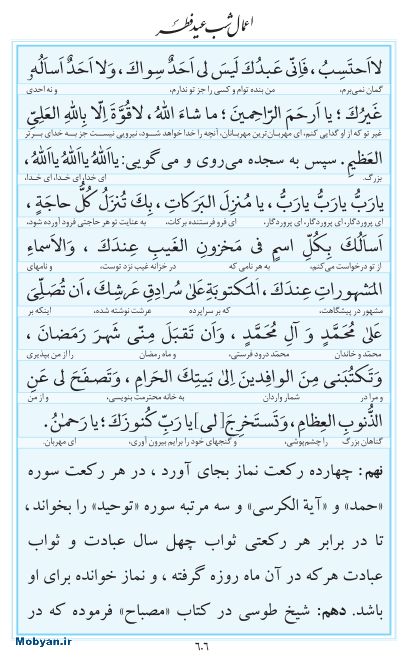 اعمال شب عید فطر
لا اَحتَسِبُ، فَاِنّی عَبدُكَ لَیسَ لی اَحَدٌ سِواكَ، وَلا اَحَدٌ اَسأَلُهُ
گمان نمی‌برم، من بنده توام و کسی را جز تو ندارم، و نه احدی
غَیرَكَ؛ یا اَرحَمَ الرّاحِمینَ؛ ما شاءَ اللهُ، لاقُوَّةَ اِلّا بِاللهِ العَلِیِّ
غیر تو که از او گدایی کنم، ای مهربان‌ترین مهربانان، آنچه را خدا خواهد شـود، نیرویی نیست جز به خدای برتر
العَظیمِ. سپس به سجده می‌روی و می‌گویی: یااَللهُ یااَللهُ یااَللهُ،
بزرگ. ای خدا ای خدا، ای خدا،
یارَبُّ یارَبُّ یارَبُّ، یا مُنزِلَ البَرَکاتِ، بِكَ تُنزَلُ کُلُّ حاجَةٍ،
ای پروردگار، ای پروردگار، ای پروردگار، ای فرو فرستنده برکات، به عنایت تو هر حاجتی فرود آورده شود،
اَسأَلُكَ بِکُلِّ اسمٍ فی مَخزونِ الغَیبِ عِندَكَ، وَالاَسماءِ
از تو درخواست می‌کنم، به هر نامی که در خزانه غیب نزد توست، و نامهای
المَشهوراتِ عِندَكَ، المَکتوبَةِ عَلیٰ سُرادِقِ عَرشِكَ، اَن تُصَلِّیَ
مشهور در پیشگاهت، که بر سراپرده عرشت نوشته شده، اینکه بر
عَلیٰ مُحَمَّدٍ وَ آلِ مُحَمَّدٍ، وَاَن تَقبَلَ مِنّی شَهرَ رَمَضانَ،
محمد و خاندان محمد درود فرستی، و ماه رمضان را از من بپذیری
وَتَکتُبَنی مِنَ الوافِدینَ اِلیٰ بَیتِكَ الحَرامِ، وَتَصفَحَ لی عَنِ
و مرا در شمار واردان به خانه محترمت بنویسی، و از من
الذُّنوبِ العِظامِ، وَتَستَخرِجَ [لی] یا رَبِّ کُنوزَكَ؛ یا رَحمٰنُ.
گناهان بزرگ را چشم‌پوشی، و گنجهای خود را برایم بیرون آوری، ای مهربان.
نهم: چهارده رکعت نماز بجای آورد ، در هر رکعت سوره
«حمد» و «آیة الکرسی» و سه مرتبه سوره «توحید» را بخواند،
تا در برابر هر رکعتی ثواب چهل سال عبادت و ثواب
عبادت هرکه در آن ماه روزه گرفته ، و نماز خوانده برای او
باشد. دهم: شیخ طوسی در کتاب «مصباح» فرموده که در
۶۰۶
Mobyan.ir